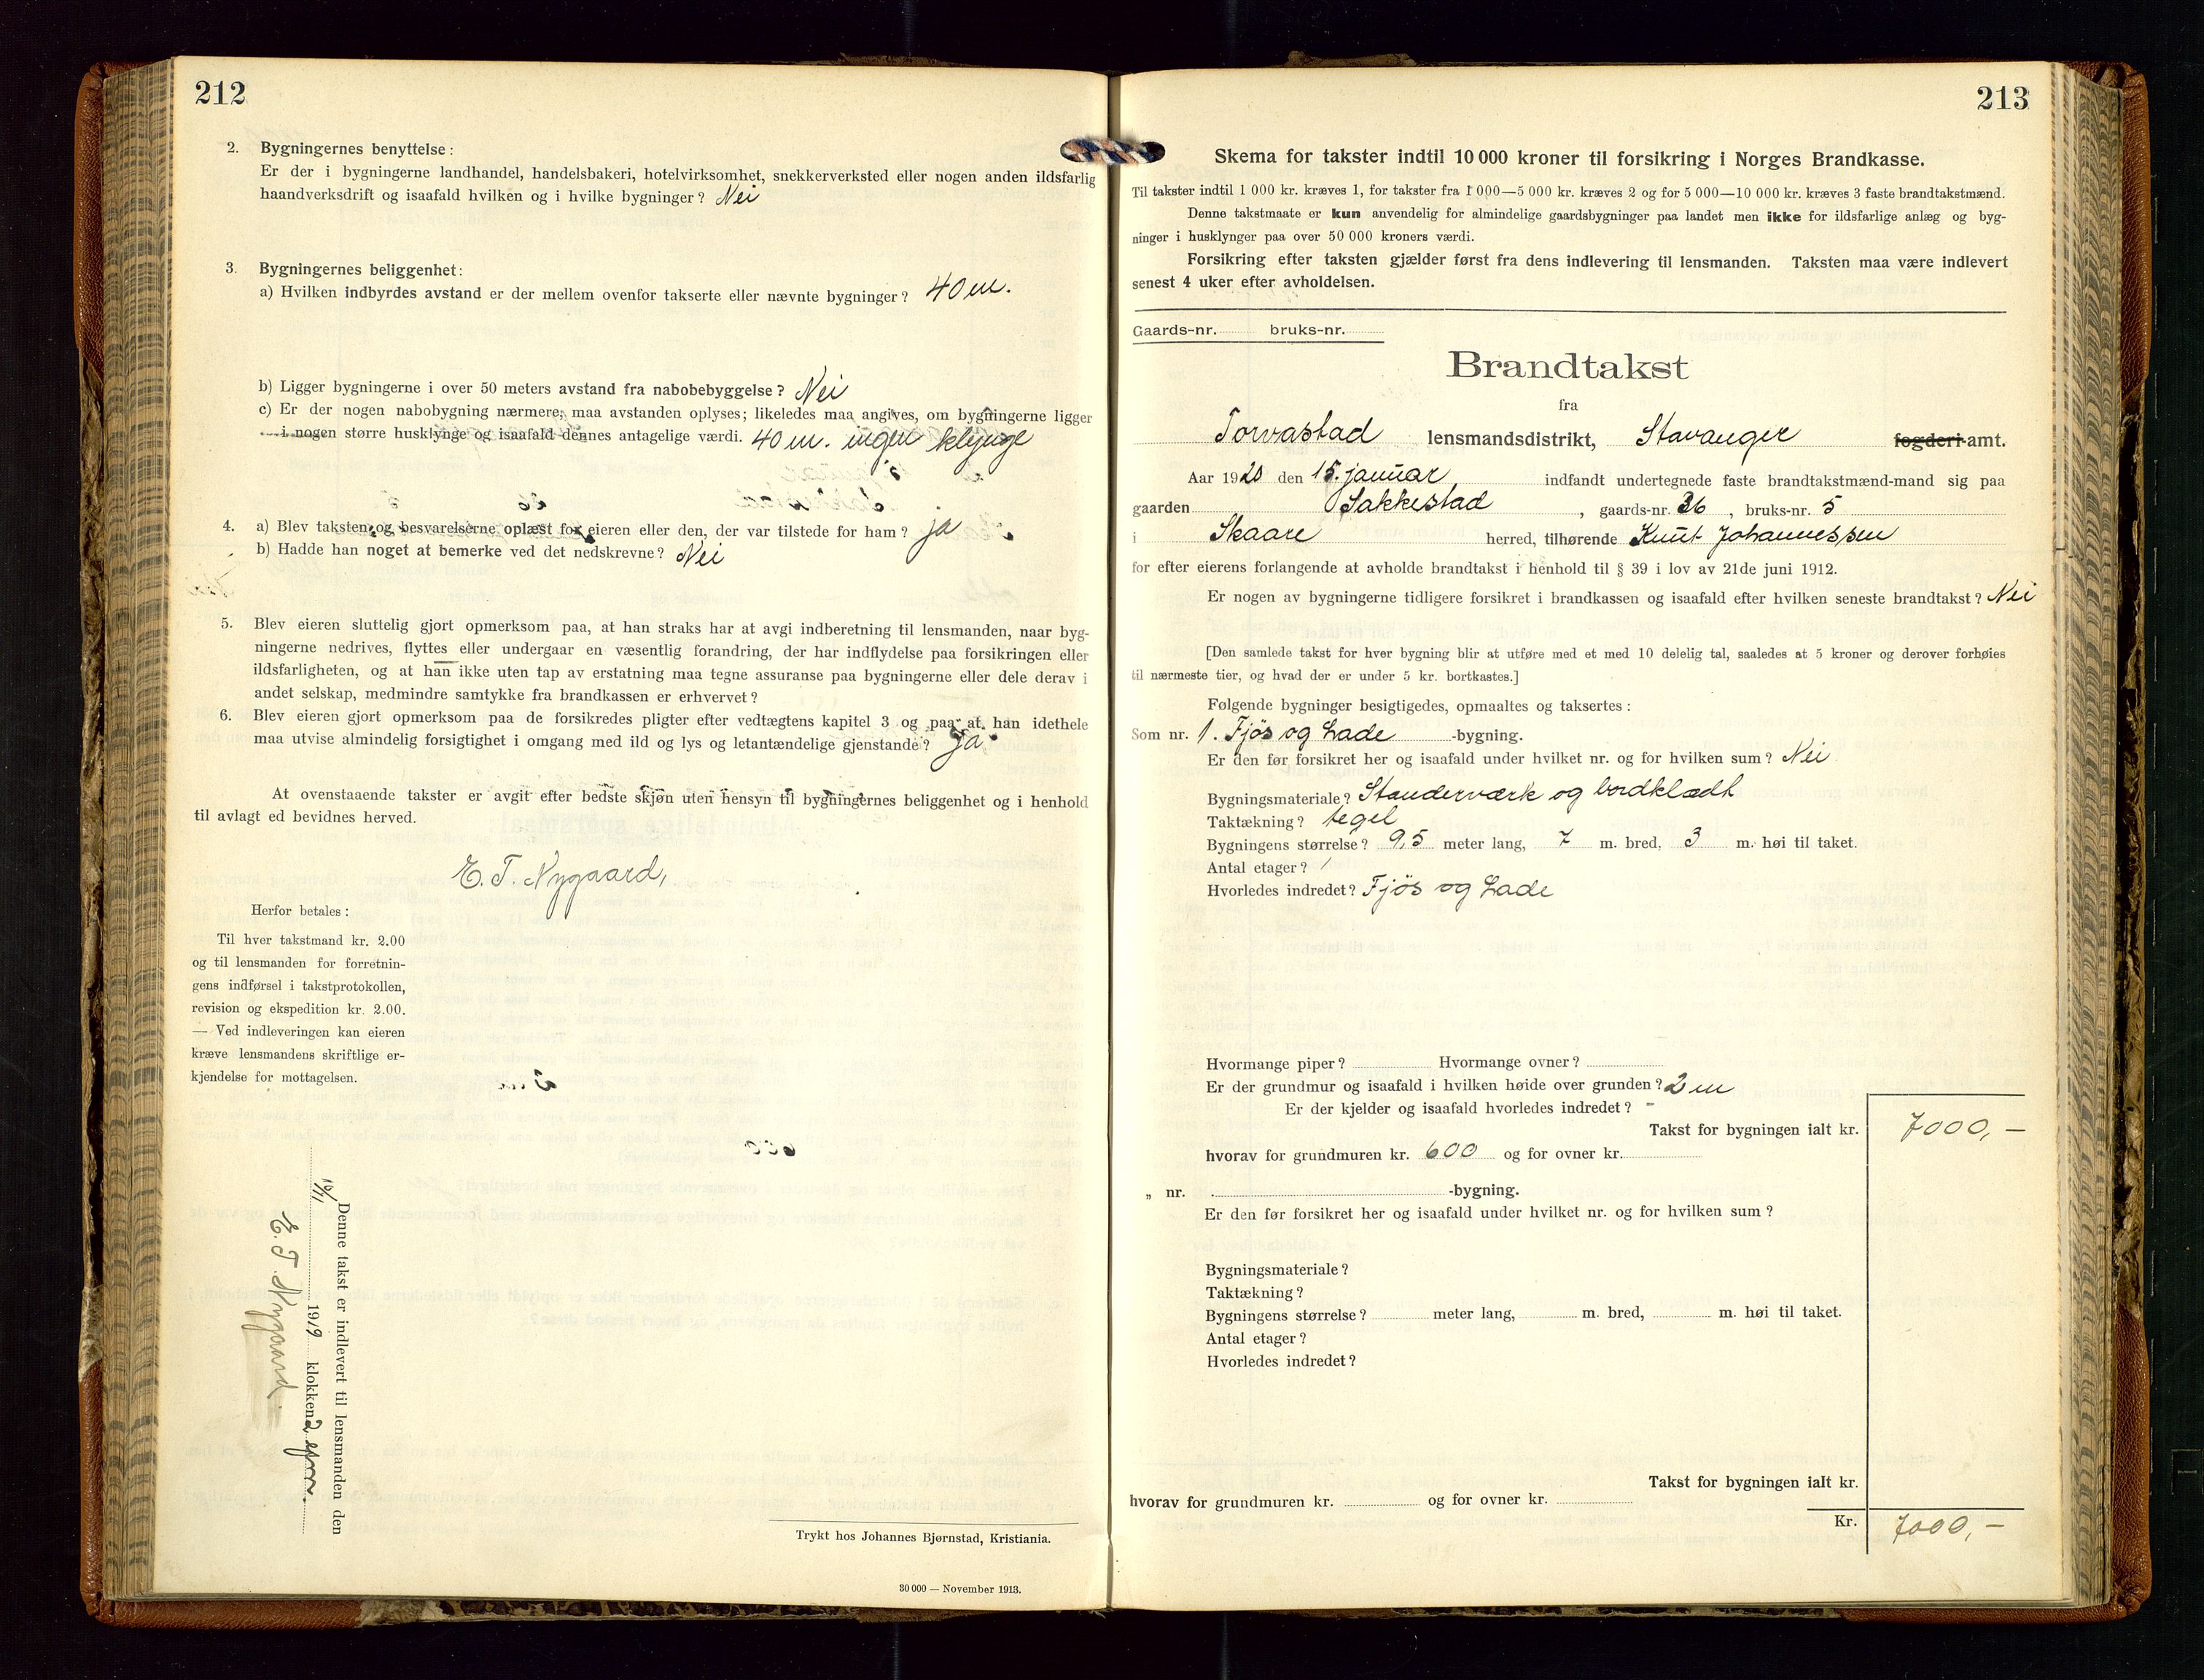 212
2. Bygningernes benyttelse:
Er der i bygningerne landhandel, handelsbakeri, hotelvirksomhet, snekkerverksted eller nogen anden ildsfarlig
haandverksdrift og isaafald hvilken og i hvilke bygninger? Nei
3. Bygningernes beliggenhet:
a) Hvilken indbyrdes avstand er der mellem ovenfor takserte eller nævnte bygninger? 40 m.
b) Ligger bygningerne i over 50 meters avstand fra nabobebyggelse? Nei
c) Er der nogen nabobygning nærmere, maa avstanden oplyses; likeledes maa angives, om bygningerne ligger
i nogen større husklynge og isaafald dennes antagelige værdi. 40 m. ingen klynge
4. a) Blev taksten og besvarelserne oplæst for eieren eller den, der var tilstede for ham? ja
b) Hadde han noget at bemerke ved det nedskrevne? Nei
5. Blev eieren sluttelig gjort opmerksom paa, at han straks har at avgi indberetning til lensmanden, naar byg-
ningerne nedrives, flyttes eller undergaar en væsentlig forandring, der har indflydelse paa forsikringen eller
ildsfarligheten, og at han ikke uten tap av erstatning maa tegne assuranse paa bygningerne eller dele derav i
andet selskap, medmindre samtykke fra brandkassen er erhvervet?
6. Blev eieren gjort opmerksom paa de forsikredes pligter efter vedtægtens kapitel 3 og paa at han idethele
maa utvise almindelig forsigtighet i omgang med ild og lys og letantændelige gjenstande? ja
At ovenstaaende takster er avgit efter bedste skjøn uten hensyn til bygningernes beliggenhet og i henhold
til avlagt ed bevidnes herved.
E. T. Nygaard,
Herfor betales:
Til hver takstmand kr. 2.00
og til lensmanden for forretnin-
gens indførsel i takstprotokollen,
revision og ekspedition kr. 2.00.
— Ved indleveringen kan eieren
kræve lensmandens skriftlige er-
kjendelse for mottagelsen.
Denne takst er indlevert til lensmanden den
1919 klokken 2 efm.
E. T. Nygaard.
Trykt hos Johannes Bjørnstad, Kristiania.
30 000 — November 1913.
213
Skema for takster indtil 10 000 kroner til forsikring i Norges Brandkasse.
Til takster indtil 1 000 kr. kræves 1, for takster fra 1 000—5 000 kr. kræves 2 og for 5 000—10 000 kr. kræves 3 faste brandtakstmænd.
Denne takstmaate er kun anvendelig for almindelige gaardsbygninger paa landet men ikke for ildsfarlige anlæg og byg-
ninger i husklynger paa over 50 000 kroners værdi.
Forsikring efter taksten gjælder først fra dens indlevering til lensmanden. Taksten maa være indlevert
senest 4 uker efter avholdelsen.
Gaards-nr. bruks-nr.
Brandtakst
fra
Torvastad lensmandsdistrikt, Stavanger fogderi-amt.
Aar 1920 den 15. januar indfandt undertegnede faste brandtakstmænd-mand sig paa
gaarden Sakkestad, gaards-nr. 36, bruks-nr. 5
i Skaare herred, tilhørende Knut Johannessen
for efter eierens forlangende at avholde brandtakst i henhold til § 39 i lov av 21de juni 1912.
Er nogen av bygningerne tidligere forsikret i brandkassen og isaafald efter hvilken seneste brandtakst? Nei
[Den samlede takst for hver bygning blir at utføre med et med 10 delelig tal, saaledes at 5 kroner og derover forhøies
til nærmeste tier, og hvad der er under 5 kr. bortkastes.]
Følgende bygninger besigtigedes, opmaaltes og taksertes:
Som nr. 1. Fjøs og Lade -bygning.
Er den før forsikret her og isaafald under hvilket nr. og for hvilken sum? Nei
Bygningsmateriale? Standerværk og bordklædt
Taktækning? tegel
Bygningens størrelse? 9,5 meter lang, 7 m. bred, 3 m. høi til taket.
Antal etager? 1
Hvorledes indredet? Fjös og Lade
Hvormange piper? Hvormange ovner?
Er der grundmur og isaafald i hvilken høide over grunden? 2 m
Er der kjelder og isaafald hvorledes indredet? -
Takst for bygningen ialt kr. 7000,—
hvorav for grundmuren kr. 600 og for ovner kr.
„ nr. -bygning.
Er den før forsikret her og isaafald under hvilket nr. og for hvilken sum?
Bygningsmateriale?
Taktækning?
Bygningens størrelse? meter lang, m. bred, m. høi til taket.
Antal etager?
Hvorledes indredet?
Takst for bygningen ialt kr.
hvorav for grundmuren kr. og for ovner kr.
Kr. 7000,—